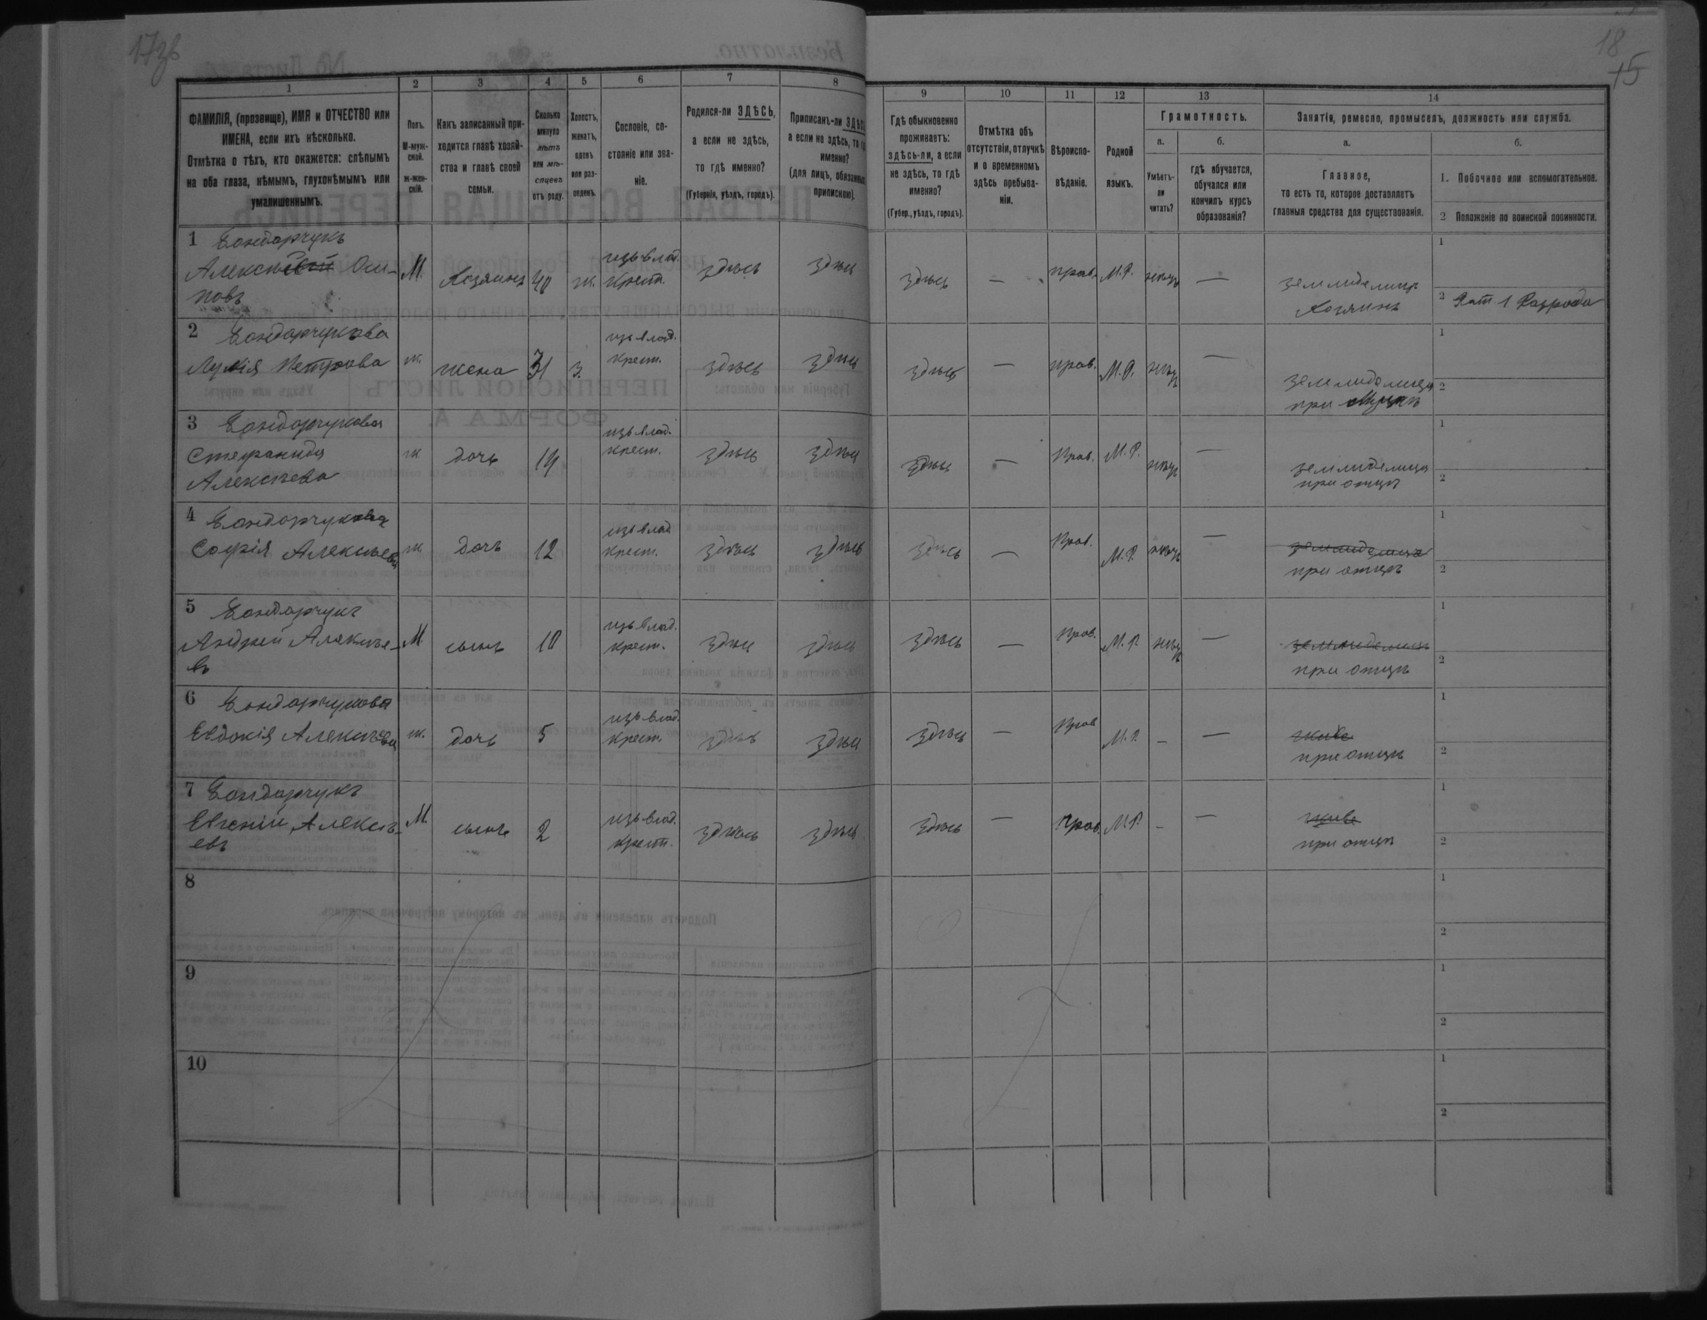 17зв
18
15
1
2
3
4
5
6
7
8
9
10
11
12
13
14
ФАМИЛІЯ, (прозвище), ИМЯ и ОТЧЕСТВО или
ИМЕНА, если ихъ нѣсколько.
Отмѣтка о тѣхъ, кто окажется: слѣпымъ
на оба глаза, нѣмымъ, глухонѣмымъ или
умалишеннымъ.
Полъ.
М-муж-
ской.
ж-жен-
скій.
Какъ записанный при-
ходится главѣ хозяй-
ства и главѣ своей
семьи.
Сколько
минуло
лѣтъ
или мѣ-
сяцевъ
отъ роду.
Холостъ,
женатъ,
вдовъ
или раз-
веденъ.
Сословіе, со-
стояніе или зва-
ніе.
Родился-ли ЗДѢСЬ,
а если не здѣсь,
то гдѣ именно?
(Губернія, уѣздъ, городъ).
Приписанъ-ли
а если не здѣсь, то
именно?
(для лицъ, обязанныхъ
припискою).
Гдѣ обыкновенно
проживаетъ:
здѣсь-ли, а если
не здѣсь, то гдѣ
именно?
(Губер., уѣздъ, городъ).
Отмѣтка объ
отсутствіи, отлучкѣ
и о временномъ
здѣсь пребыва-
ніи.
Вѣроиспо-
вѣданіе.
Родной
языкъ.
Грамотность.
а.
Умѣетъ-
ли
читать?
б.
гдѣ обучается,
обучался или
кончилъ курсъ
образованія?
Занятіе, ремесло, промыселъ, должность или служба.
а.
Главное,
то есть то, которое доставляетъ
главныя средства для существованія.
б.
1. Побочное или вспомогательное.
2 Положеніе по воинской повинности.
1 Бондарчукъ
Алексѣй Оси-
повъ
М. Хозяинъ 40 ж. изъ влад. крест. здѣсь здѣсь здѣсь — прав. М.Р. —
земледѣлецъ
хозяинъ
1
2 Рат 1 Разряда
2 Бондарчукова
Петрова
ж жена з. изъ влад. крест. здѣсь здѣсь здѣсь — прав. М.Р. —
при
1
2
3 Бондарчукова
Степанида
Алексѣева
ж дочь 19 изъ влад. крест. здѣсь здѣсь здѣсь — прав. М.Р. —
земледѣлица
при отцѣ
1
2
4 Бондарчукова
Софія Алексѣева
ж дочь 12 изъ влад. крест. здѣсь здѣсь здѣсь — прав. М.Р. —
земледѣлица
при отцѣ
1
2
5 Бондарчукъ
Андрей Алексѣе-
въ
М сынъ 10 изъ влад. крест. здѣсь здѣсь здѣсь — прав. М.Р. —
при отцѣ
1
2
6 Бондарчукова
Евдокія Алексѣева
ж. дочь 5 изъ влад. крест. здѣсь здѣсь здѣсь — прав М.Р. — —
при отцѣ
1
2
7 Бондарчукъ
Евгеній Алексѣ-
евъ
М. сынъ 2 изъ влад. крест. здѣсь здѣсь здѣсь — прав. М.Р. — —
при отцѣ
1
2
8
1
2
9
1
2
10
1
2